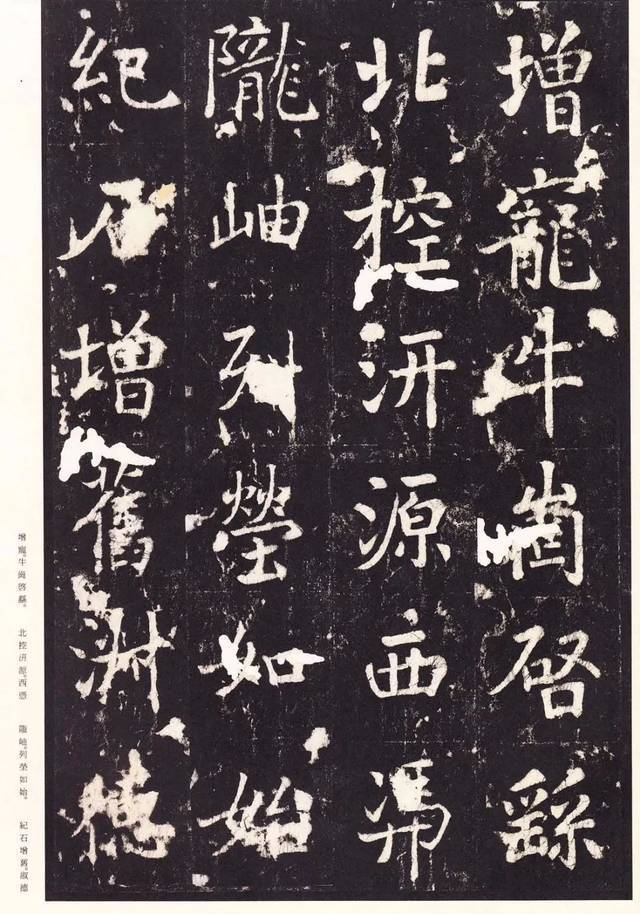 增寵牛崗啓繇
北控汧源西馮
隴岫列塋如始
紀石增舊淋德
增寵。牛崗啓繇。 北控汧源。西憑 隴岫。列塋如始。 紀石增舊。淑德